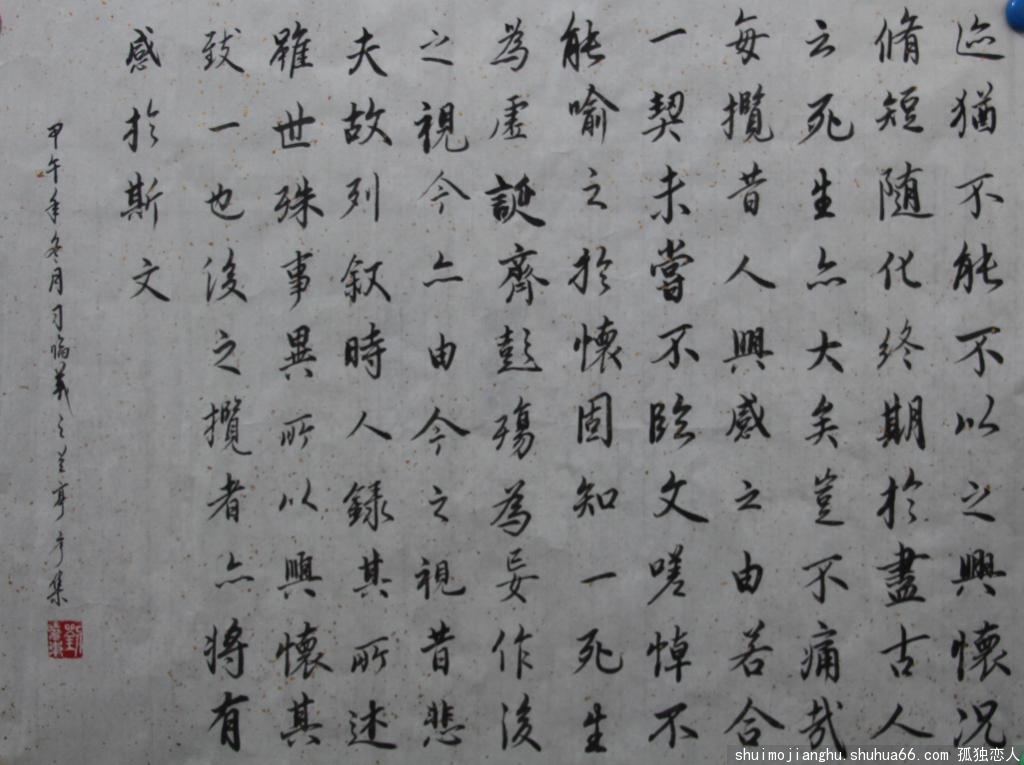 迹猶不能不以之興懷況
脩短随化终期於盡古人
云死生亦大矣豈不痛哉
每攬昔人興感之由若合
一契未嘗不臨文嗟悼不
能喻之於懷固知一死生
為虚誕齊彭殤為妄作後
之視今亦由今之視昔悲
夫故列叙時人録其所述
雖世殊事異所以興懷其
致一也後之攬者亦将有
感於斯文
甲午年冬月习临羲之兰亭序集
shuimojianghu.shuhua66.com 孤独恋人